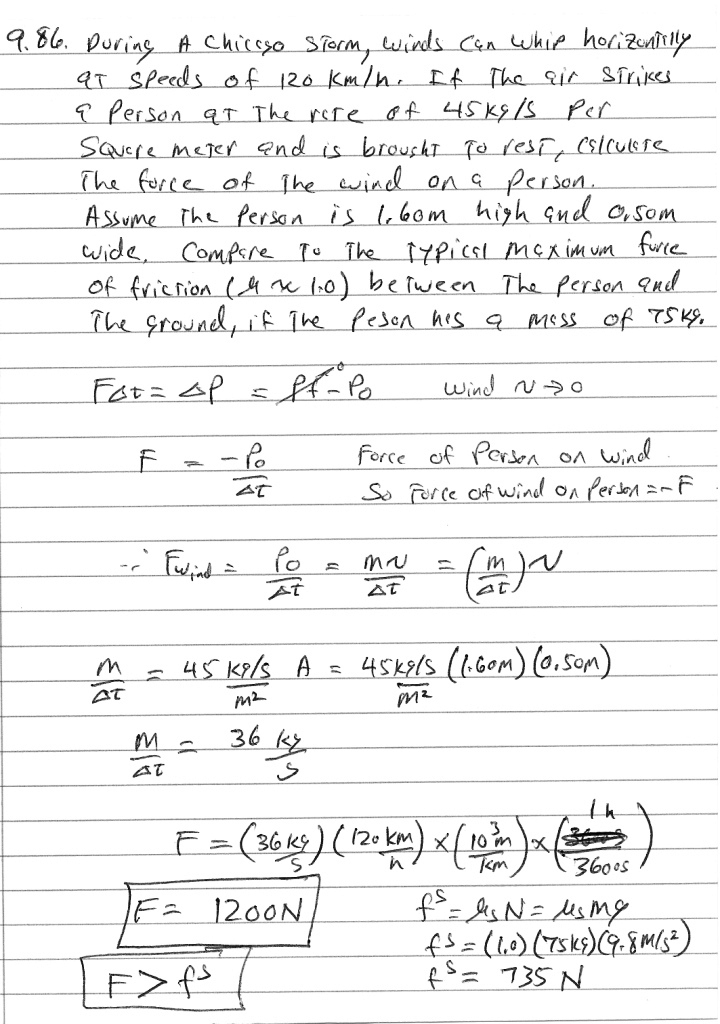 9.86. During A Chicago Storm, winds can whip horizontally
at speeds of 120 km/h. If The air strikes
a Person at The rate of 45 kg/s Per
Square meter and is brought To rest, calculate
The force of The wind on a person.
Assume The Person is 1.60m high and 0.50m
wide. Compare To The Typical maximum force
of friction (μ ≈ 1.0) between The person and
The ground, if The Peson has a mass of 75 kg.
FΔt = ΔP = Pf⁰ - Po wind v → 0
F = -Po/Δt Force of Person on wind
So Force of wind on Person = -F
∴ Fwind = Po/Δt = mv/Δt = (m/Δt) v
m/Δt = 45 kg/s/m² A = 45 kg/s/m² (1.60m) (0.50m)
m/Δt = 36 kg/s
F = (36 kg/s) (120 km/h) × (10³m/km) × (1h/3600s)
F = 1200N fˢ = μsN = μsmg
fs = (1.0) (75kg) (9.8 m/s²)
F > fˢ fˢ = 735 N